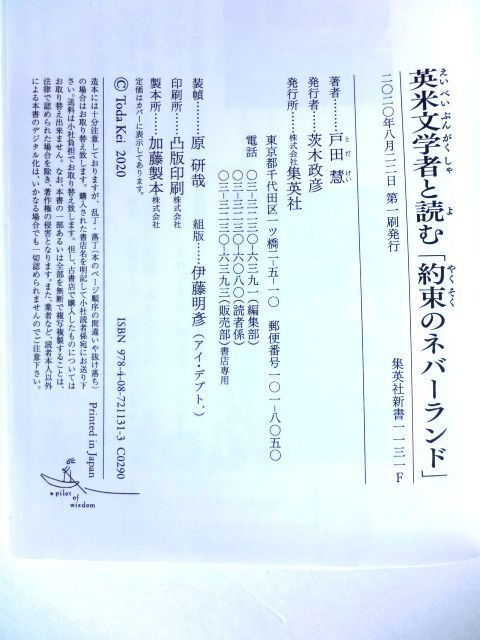 英米文学者と読む「約束のネバーランド」
えいべいぶんがくしゃ よ やくそく
二〇二〇年八月二二日 第一刷発行
集英社新書一一三一F
著者………戸田 慧
とだ けい
発行者………茨木政彦
発行所………株式会社集英社
東京都千代田区一ツ橋二-五-一〇 郵便番号一〇一-八〇五〇
電話 〇三-三二三〇-六三九一(編集部)
〇三-三二三〇-六〇八〇(読者係)
〇三-三二三〇-六三九三(販売部)書店専用
装幀………原 研哉 組版………伊藤明彦(アイ・デプト.)
印刷所………凸版印刷株式会社
製本所………加藤製本株式会社
定価はカバーに表示してあります。
© Toda Kei 2020
ISBN 978-4-08-721131-3 C0290
造本には十分注意しておりますが、乱丁・落丁(本のページ順序の間違いや抜け落ち)
の場合はお取り替え致します。購入された書店名を明記して小社読者係宛にお送り下
さい。送料は小社負担でお取り替え致します。但し、古書店で購入したものについては
お取り替え出来ません。なお、本書の一部あるいは全部を無断で複写複製することは、
法律で認められた場合を除き、著作権の侵害となります。また、業者など、読者本人以外
による本書のデジタル化は、いかなる場合でも一切認められませんのでご注意下さい。
Printed in Japan
a pilot
of
wisdom